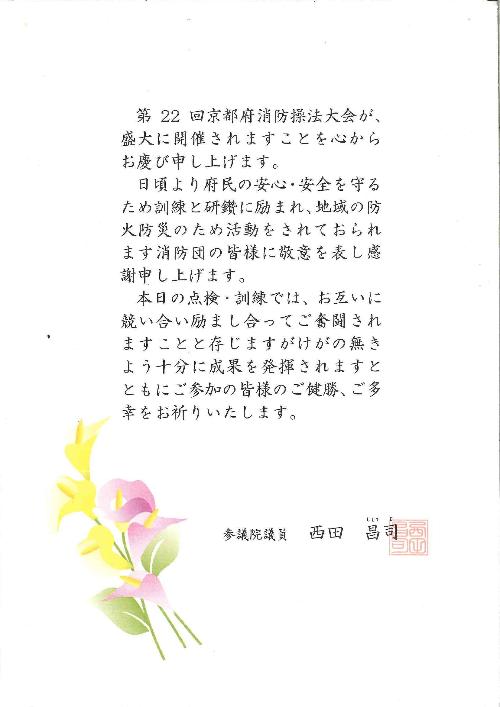 第 22 回京都府消防操法大会が、
盛大に開催されますことを心から
お慶び申し上げます。
日頃より府民の安心・安全を守る
ため訓練と研鑽に励まれ、地域の防
火防災のため活動をされておられ
ます消防団の皆様に敬意を表し感
謝申し上げます。
本日の点検・訓練では、お互いに
競い合い励まし合ってご奮闘され
ますことと存じますがけがの無き
よう十分に成果を発揮されますと
ともにご参加の皆様のご健勝、ご多
幸をお祈りいたします。
参議院議員 西田 昌司